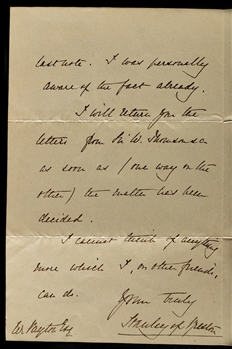 last note. I was personally
aware of the fact already.
I will return you the
letters from Sir W. Thomson
as soon as (one way or the
other) the matter has been
decided.
I cannot think of anything
more which I, or other friends,
can do.
Yours truly
Stanley of Preston
W. Esq